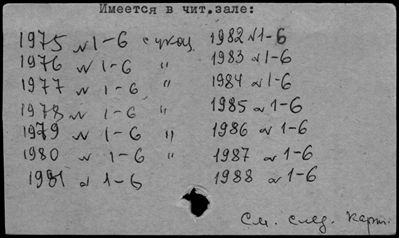 Имеется в чит.зале:
1975 № 1-6 с указ. 1982 № 1-6
1976 № 1-6 " 1983 № 1-6
1977 № 1-6 " 1984 № 1-6
1978 № 1-6 " 1985 № 1-6
1979 № 1-6 " 1986 № 1-6
1980 № 1-6 " 1987 № 1-6
1981 № 1-6 1988 № 1-6
См. след. карт.